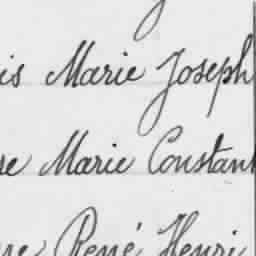 is Marie Joseph
re Marie Constan
re René Henri